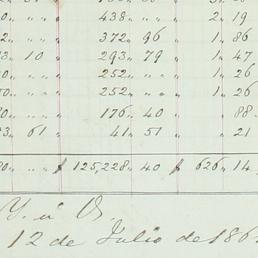 438 „ „ „ 2 „ 19
372 „ 96 „ 1 „ 86
10 „ 293 „ 79 „ 1 „ 47
„ „ „ 252 „ „ „ 1 „ 26
„ „ „ 252 „ „ „ 1 „ 26
„ „ „ 176 „ 40 „ „ 88
61 „ 41 „ 51 „ „ 21
„ „ $ 125,228 „ 40 $ 626 „ 14
12 de Julio de 186